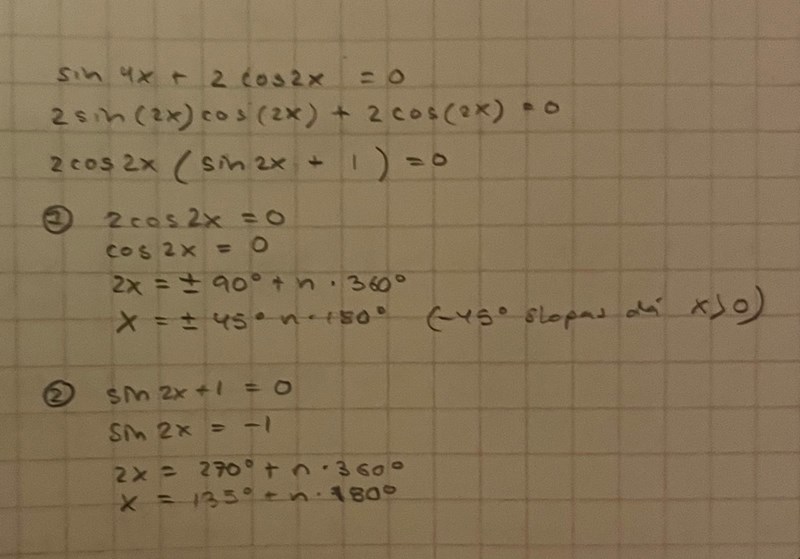 sin 4x + 2 cos2x = 0
2 sin(2x)cos(2x) + 2cos(2x) = 0
2cos2x (sin2x + 1) = 0
① 2cos2x = 0
cos 2x = 0
2x = ± 90° + n · 360°
x = ± 45° n · 180° (-45° slopas då x>0)
② sin 2x+1 = 0
sin 2x = -1
2x = 270° + n · 360°
x = 135° + n · 180°